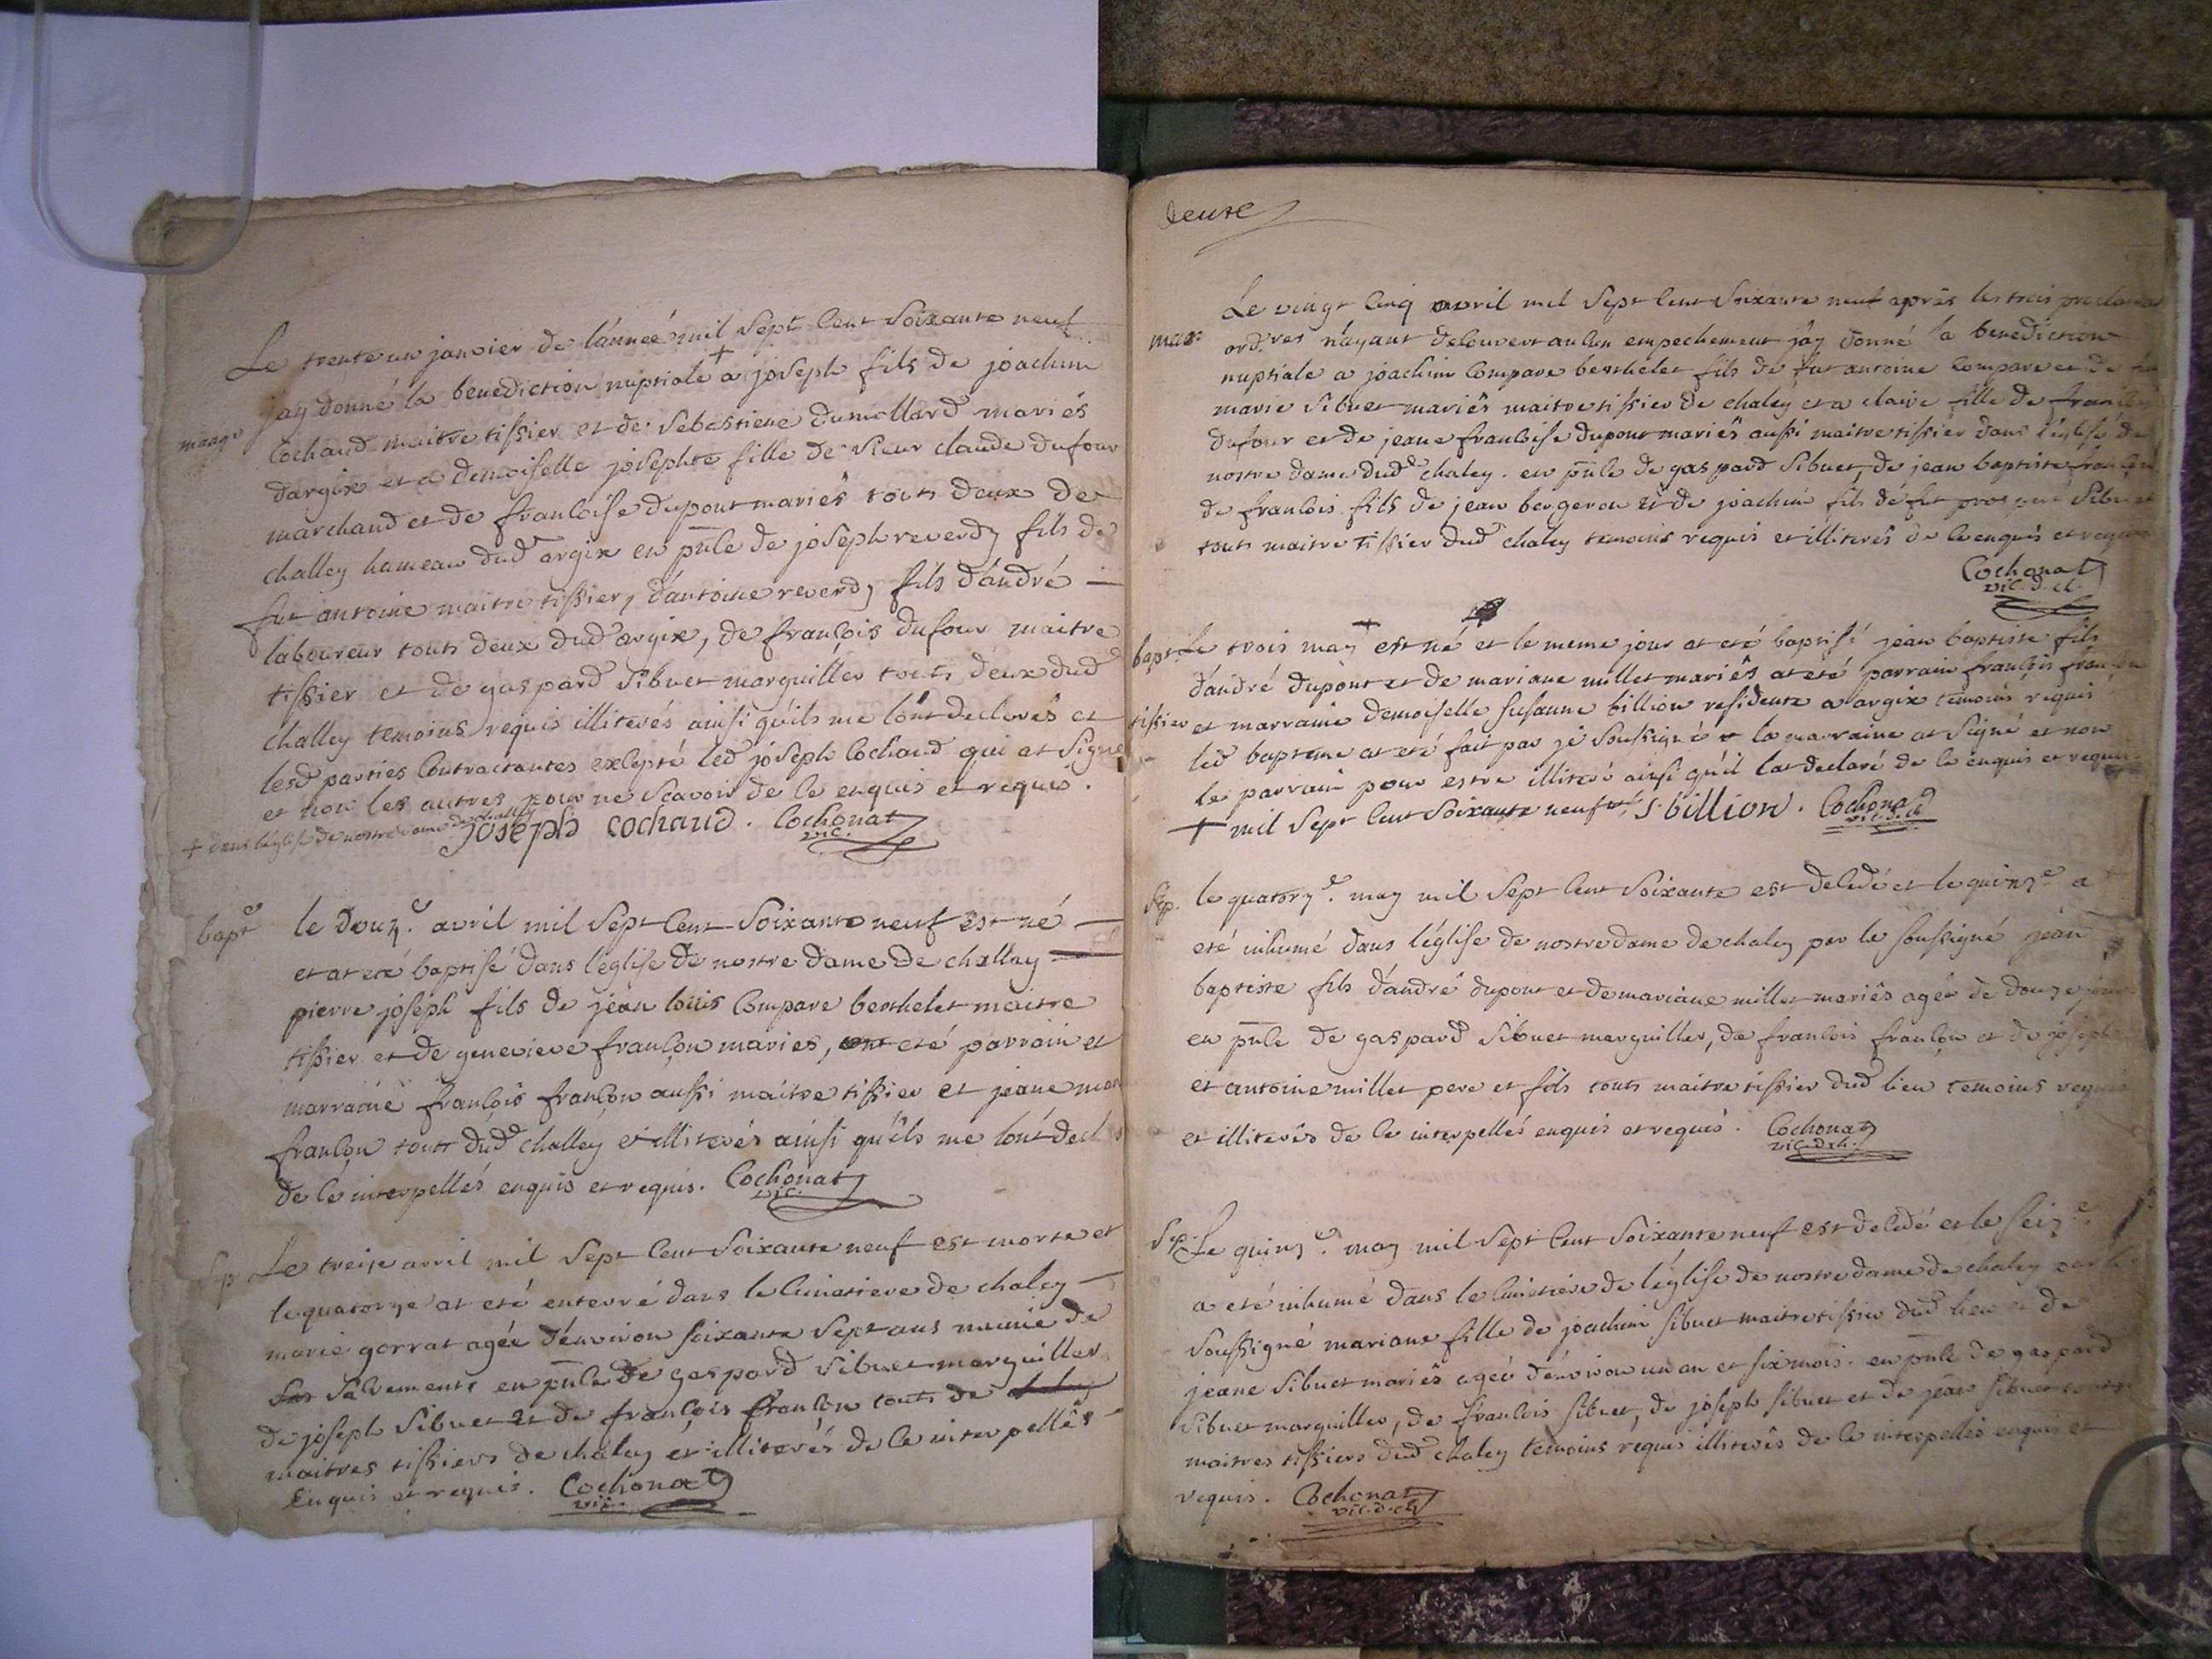 Le trente un janvier de l'année mil Sept Cent Soixante neuf
maage
jay donné la benediction nuptiale + a joseph fils de joachim
Cochaud maitre tissier et de Sebastiene dumollard mariés
dargix et a demoiselle josephte fille de Sieur claude dufour
marchand et de francoise dupont mariés touts deux de
challey hameau dud argix en pnle de joseph reverdy fils de
fut antoine maitre tissier, d'antoine reverdy fils d'andré
laboureur touts deux dud argix, de françois dufour maitre
tissier et de gaspard Sibuet marguiller touts deux dud
challey temoins requis illiterés ainsi qu'ils me l'ont declarés et
lesd parties Contractantes excepté led joseph Cochaud qui at Signé
et non les autres pour ne Scavoir de ce enquis et requis.
+ dans l'église de nostre dame de challey
joseph cochaud. Cochonat
vic.
bapt^e
le douz^e. avril mil Sept Cent Soixante neuf est né
et at eté baptisé dans l'eglise de nostre dame de challey
pierre joseph fils de jean loüis Compare berthelet maitre
tissier et de genevieve françon mariés, ont eté parrain et
marraine françois françon aussi maitre tissier et jeane
françon touts dud challey et illiterés ainsi qu'ils me l'ont
de ce interpellés enquis et requis. Cochonat
vic.
Sep
Le treize avril mil Sept Cent Soixante neuf est morte et
le quatorze at eté enterré dans le Cimetiere de chaley
marie gorrat agée d'environ soixante Sept ans munie de
Sacrements en pnle de gaspard Sibuet marguiller
de joseph Sibuet et de françois françon touts de
maitres tissiers de chaley et illiterés de ce interpellés
Enquis et requis. Cochonat
vic.
deuxe
Le vingt Cinq avril mil Sept Cent Soixante neuf après les trois
mar.
ord.res n'ayant decouvert aucun empechement jay donné la benediction
nuptiale a joachim Compare berthelet fils de fut antoine Compare et de
marie Sibuet mariés maitre tissier de chaley et a claire fille de
dufour et de jeane francoise dupont mariés aussi maitre tissier dans l'église de
nostre dame dud chaley. en pnle de gaspard Sibuet, de jean baptiste
de francois fils de jean bergeron et de joachim fils de fut Sibuet
touts maitre tissier dud chaley temoins requis et illiterés de ce enquis et requis
Cochonat
vic. d. ch.
bapt.
Le trois may + est né et le meme jour at eté baptisé jean baptiste fils
d'andré dupont et de mariane millet mariés at eté parrain francois françon
tissier et marraine demoiselle Susanne billion residente a argix temoins requis
led bapteme at eté fait par je Soussigné la marraine at Signé et non
le parrain pour estre illiteré ainsi qu'il l'at declaré de ce enquis et requis
+ mil Sept Cent Soixante neuf S. billion. Cochonat
vic. d. ch
Sep.
le quatorz^e. may mil Sept Cent Soixante est decedé et le quinz^e a
eté inhumé dans l'église de nostre dame de chaley par le soussigné jean
baptiste fils d'andré dupont et de mariane millet mariés agée de douze jours
en pnle de gaspard Sibuet marguiller, de francois françon et de joseph
et antoine millet pere et fils touts maitre tissier dud lieu temoins requis
et illiterés de ce interpellés enquis et requis. Cochonat
vic. d. ch.
Sep.
Le quinz^e. may mil Sept Cent Soixante neuf est decedé et le seiz^e.
a eté inhumé dans le Cimetiere de l'église de nostre dame de chaley par le
Soussigné mariane fille de joachim Sibuet maitre tissier dud lieu et de
jeane Sibuet mariés agée d'environ un an et six mois. en pnle de gaspard
Sibuet marguiller, de francois Sibuet, de joseph Sibuet et de jean Sibuet touts
maitres tissiers dud chaley temoins requis illiterés de ce interpellés enquis et
requis. Cochonat
vic. d. ch